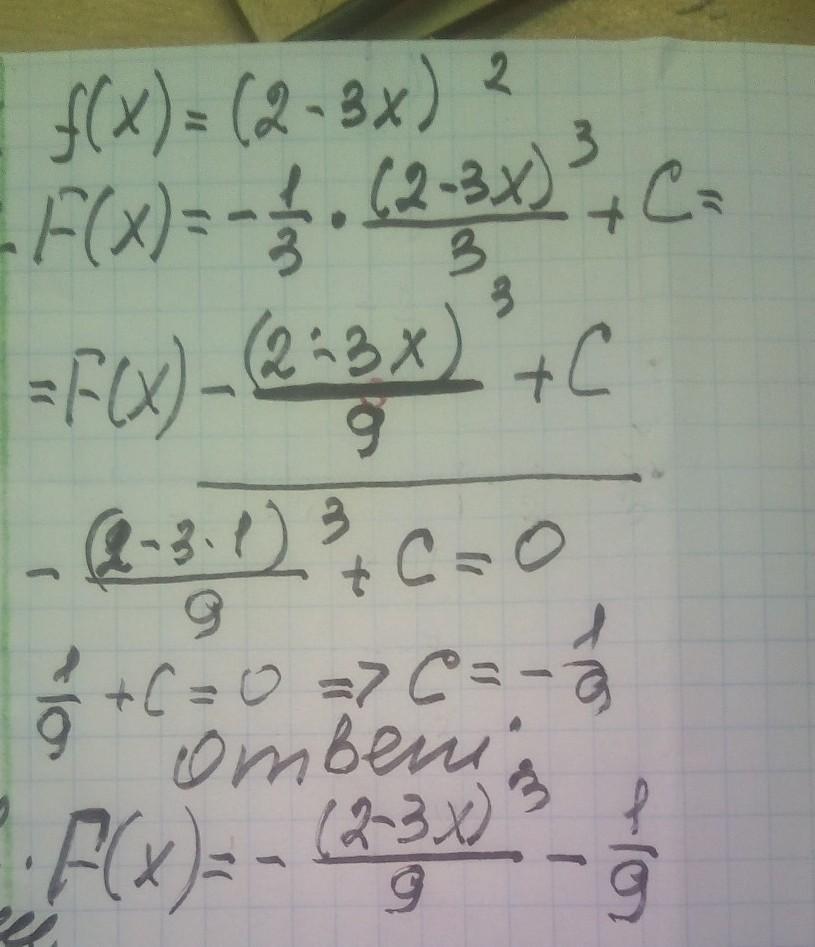 f(x) = (2 - 3x)²
F(x) = - 1/3 · (2-3x)³/3 + C =
= F(x) - (2-3x)³/9 + C
- (2-3·1)³/9 + C = 0
1/9 + C = 0 => C = - 1/9
ответ:
F(x) = - (2-3x)³/9 - 1/9